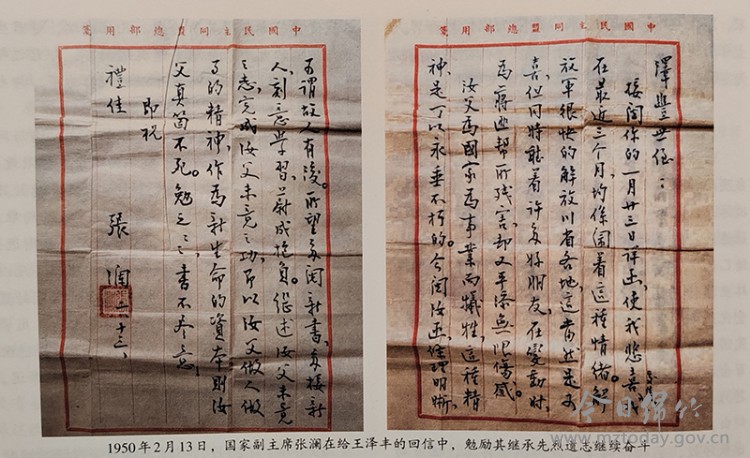 中國民主同盟總部用箋
澤豐世侄：
接閱你的一月廿三日詳函，使我悲喜
在最近三个月，均係闹着這種情绪。解
放軍很快的解放川省各地，這当然是可
喜，但同時眼看着許多好朋友，在變動时，
為蔣匪幫所残害，却又平添無限傷感。
汝父為國家為事業而犧牲，這種精
神是可以永垂不朽的。今閱汝函，條理明晰，
中國民主同盟總部用箋
可謂故人有後。所望多閱新書，多接新
人，刻意學習，蔚成抱負。繼述汝父未竟
之志，完成汝父未竟之功，即以汝父做人做
事的精神，作為新生命的資本，則汝
父真箇不死。勉之之，書不尽意，
即祝
禮佳
張瀾 二、十三、
1950年2月13日，国家副主席张澜在给王泽丰的回信中，勉励其继承先烈遗志继续奋斗
今日绵竹
www.mztoday.gov.cn